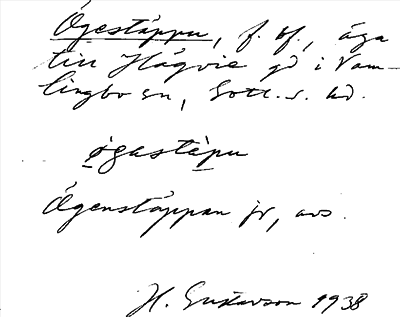 Ågestäppu, f. bf., äga
till Hägvie gd i Vam-
lingbo sn, Gotl. s. hd.
ǫgastę̀pu
Ägenstäppan jr, avs.
H. Gustavson 1938